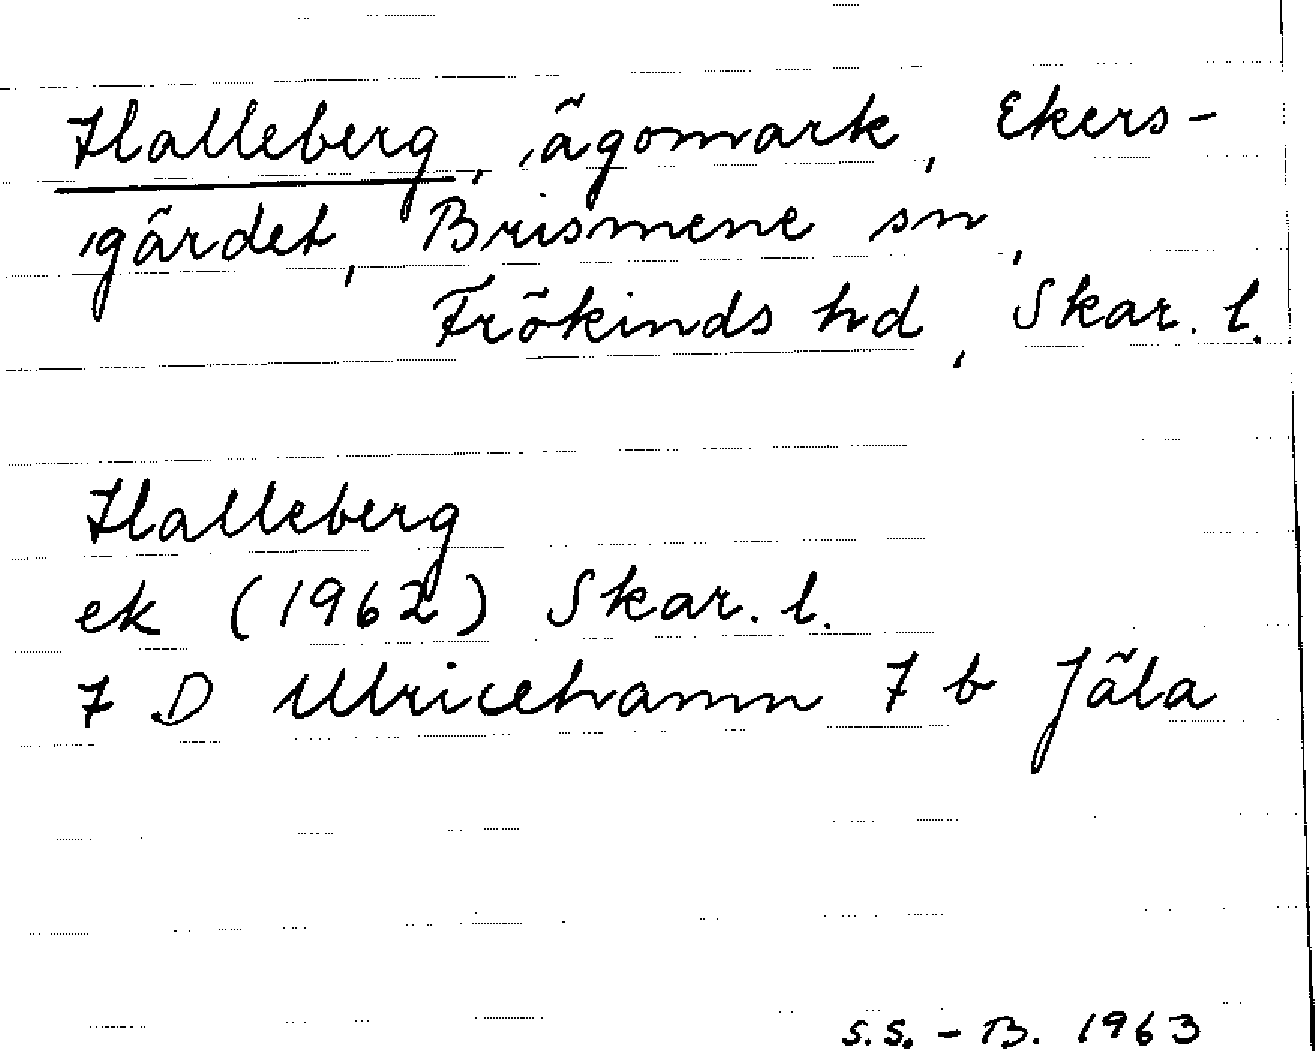 Halleberg, ägomark, Ekers-
gärdet, Brismene sn,
Frökinds hd, Skar. l.
Halleberg
ek (1962) Skar. l.
7 D Ulricehamn 7 b Jäla
S.S. - B. 1963